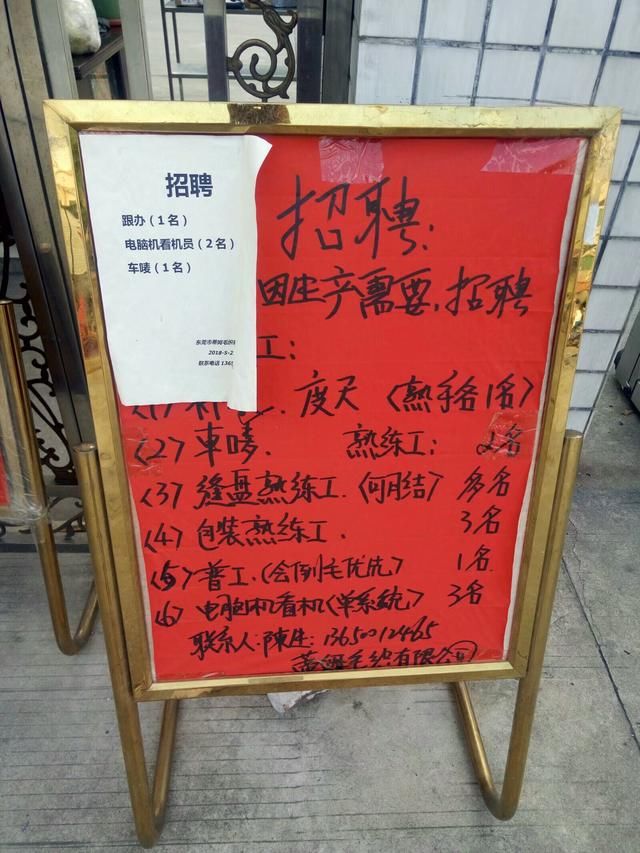 招聘
跟办（1名）
电脑机看机员（2名）
车唛（1名）
2018-5-2
联系电话 1365
招聘:
因生产需要,招聘
工:
度尺 (熟手各1名)
(2) 車唛. 熟练工: 2名
(3) 缝盘熟练工.(可月结) 多名
(4) 包装熟练工. 3名
(5) 普工.(会倒毛优先) 1名
(6) 电脑机看机(单系统) 3名
联系人:陳生: 13650012465
毛织有限公司